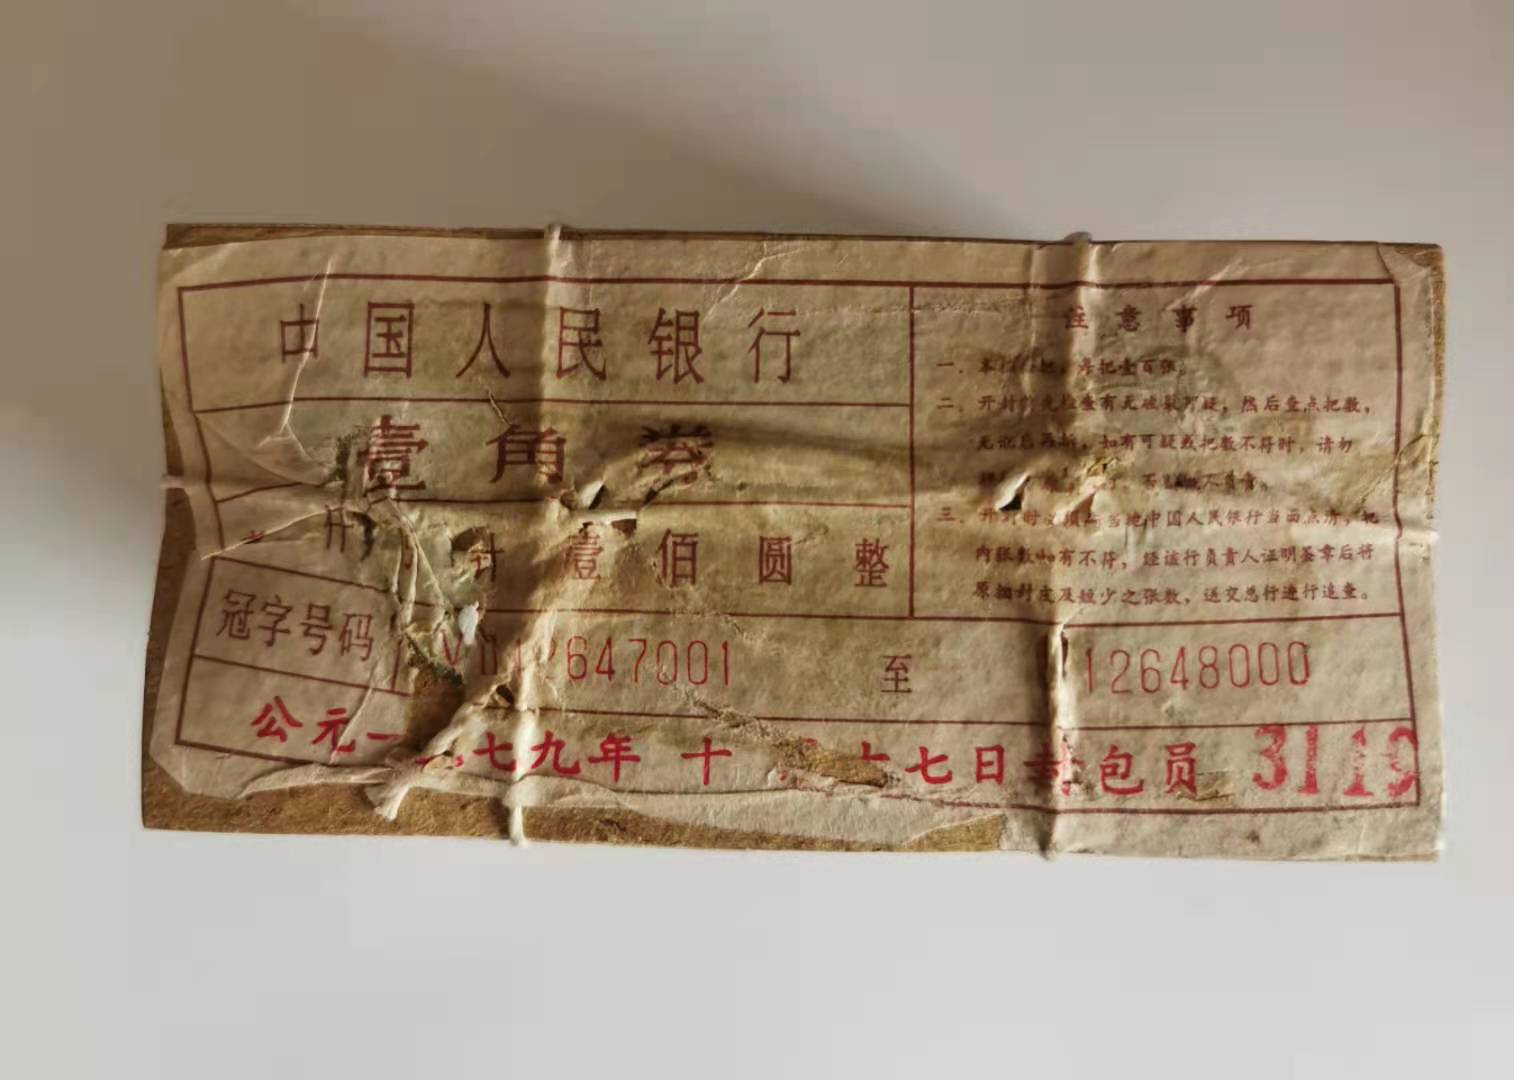 中国人民银行
壹角券
计壹佰圆整
冠字号码 2647001 至 12648000
公元一 七九年 十 七日 包员 3119
注意事项
一、本 把，每把壹百张。
二、开封 先检查有无破裂可疑，然后查点把数，
无讹后再拆，如有可疑或把数不符时，请勿
不负责。
三、开封时必须 当地中国人民银行当面点清，把
内张数如有不符，经该行负责人证明签章后将
原捆封皮及短少之张数，送交总行进行追查。